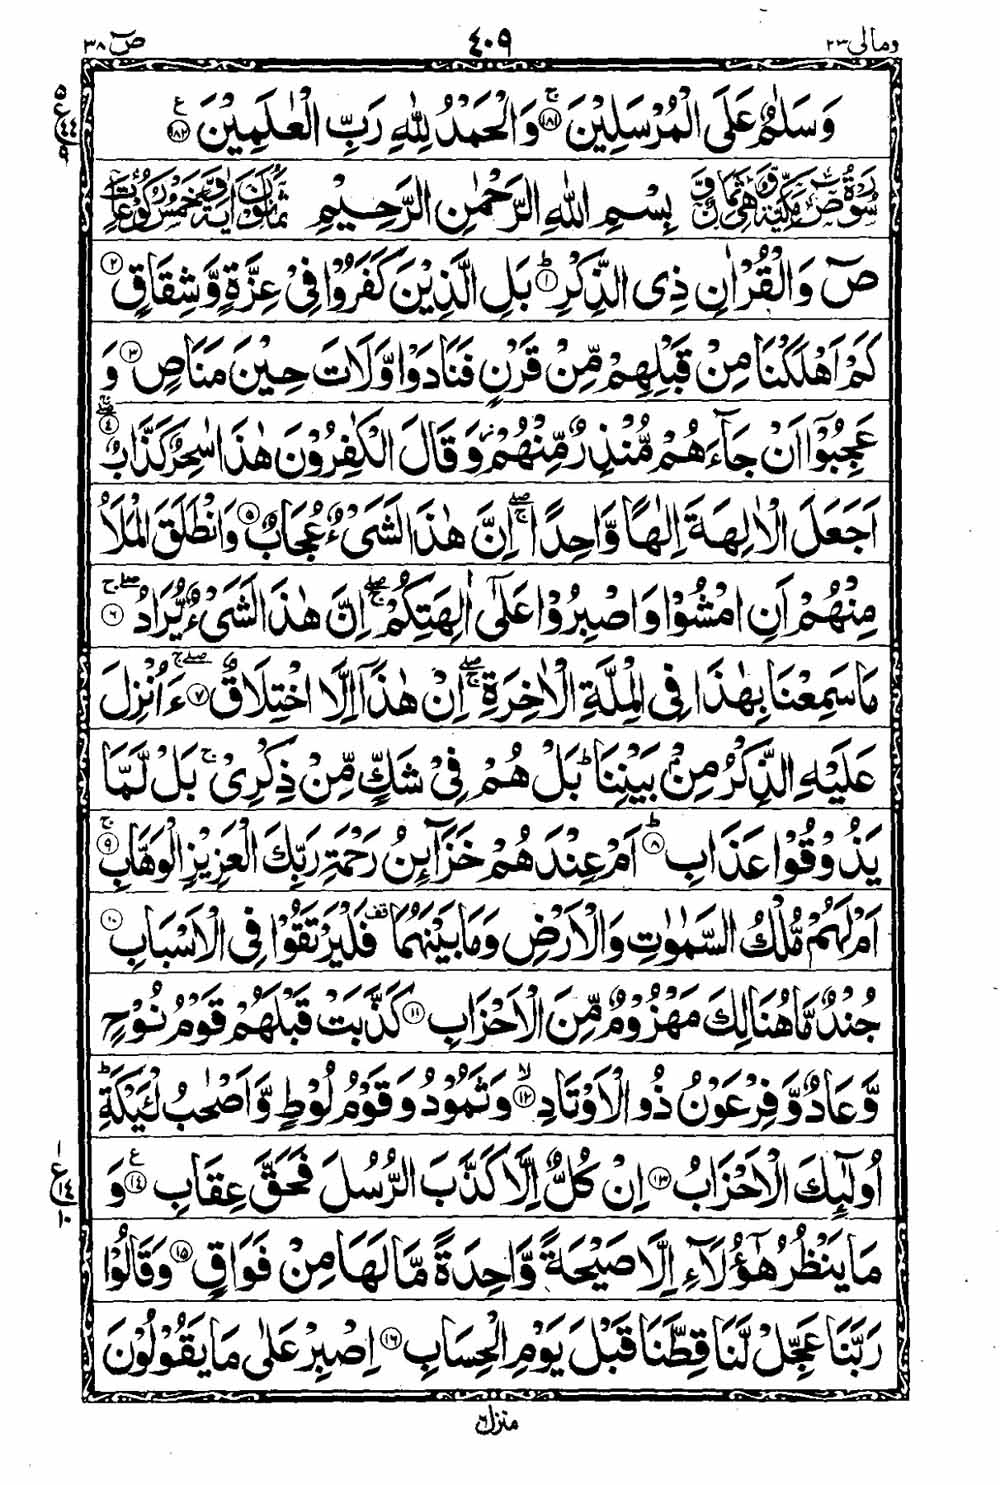 ومالی ٢٣
٤٠٩
صٓ ٣٨
وَسَلٰمٌ عَلَى الْمُرْسَلِيْنَ ۚ‏﴿١٨١﴾ وَالْحَمْدُ لِلّٰهِ رَبِّ الْعٰلَمِيْنَ ﴿١٨٢﴾ ع
سُوْرَةُ صٓ مَكِّيَّةٌ وَّهِيَ ثَمَانٌ وَّ بِسْمِ اللّٰهِ الرَّحْمٰنِ الرَّحِيْمِ ثَمَانُوْنَ اٰيَةً وَّخَمْسُ رُكُوْعَاتٍ
صٓ وَالْقُرْاٰنِ ذِى الذِّكْرِ ؕ‏﴿١﴾ بَلِ الَّذِيْنَ كَفَرُوْا فِىْ عِزَّةٍ وَّشِقَاقٍ ﴿٢﴾
كَمْ اَهْلَكْنَا مِنْ قَبْلِهِمْ مِّنْ قَرْنٍ فَنَادَوْا وَّلَاتَ حِيْنَ مَنَاصٍ ﴿٣﴾ وَ
عَجِبُوْۤا اَنْ جَآءَهُمْ مُّنْذِرٌ مِّنْهُمْ ز وَقَالَ الْكٰفِرُوْنَ هٰذَا سٰحِرٌ كَذَّابٌ ۖۚ‏﴿٤﴾
اَجَعَلَ الْاٰلِهَةَ اِلٰهًا وَّاحِدًا ۖۚ اِنَّ هٰذَا لَشَىْءٌ عُجَابٌ ﴿٥﴾ وَانْطَلَقَ الْمَلَاُ
مِنْهُمْ اَنِ امْشُوْا وَاصْبِرُوْا عَلٰٓى اٰلِهَتِكُمْ ۖۚ اِنَّ هٰذَا لَشَىْءٌ يُّرَادُ ۖۚ‏﴿٦﴾
مَا سَمِعْنَا بِهٰذَا فِى الْمِلَّةِ الْاٰخِرَةِ ۖۚ اِنْ هٰذَاۤ اِلَّا اخْتِلَاقٌ ۖۚ‏﴿٧﴾ ءَاُنْزِلَ
عَلَيْهِ الذِّكْرُ مِنْۢ بَيْنِنَا ؕ بَلْ هُمْ فِىْ شَكٍّ مِّنْ ذِكْرِىْ ۚ بَلْ لَّمَّا
يَذُوْقُوْا عَذَابِ ؕ‏﴿٨﴾ اَمْ عِنْدَهُمْ خَزَآئِنُ رَحْمَةِ رَبِّكَ الْعَزِيْزِ الْوَهَّابِ ۚ‏﴿٩﴾
اَمْ لَهُمْ مُّلْكُ السَّمٰوٰتِ وَالْاَرْضِ وَمَا بَيْنَهُمَا قف فَلْيَرْتَقُوْا فِى الْاَسْبَابِ ﴿١٠﴾
جُنْدٌ مَّا هُنَالِكَ مَهْزُوْمٌ مِّنَ الْاَحْزَابِ ﴿١١﴾ كَذَّبَتْ قَبْلَهُمْ قَوْمُ نُوْحٍ
وَّعَادٌ وَّفِرْعَوْنُ ذُو الْاَوْتَادِ ۙ‏﴿١٢﴾ وَثَمُوْدُ وَقَوْمُ لُوْطٍ وَّاَصْحٰبُ لْـَٔيْكَةِ ؕ
اُولٰٓئِكَ الْاَحْزَابُ ﴿١٣﴾ اِنْ كُلٌّ اِلَّا كَذَّبَ الرُّسُلَ فَحَقَّ عِقَابِ ﴿١٤﴾ ع وَ
مَا يَنْظُرُ هٰٓؤُلَآءِ اِلَّا صَيْحَةً وَّاحِدَةً مَّا لَهَا مِنْ فَوَاقٍ ﴿١٥﴾ وَقَالُوْا
رَبَّنَا عَجِّلْ لَّنَا قِطَّنَا قَبْلَ يَوْمِ الْحِسَابِ ﴿١٦﴾ اِصْبِرْ عَلٰى مَا يَقُوْلُوْنَ
منزل ٦